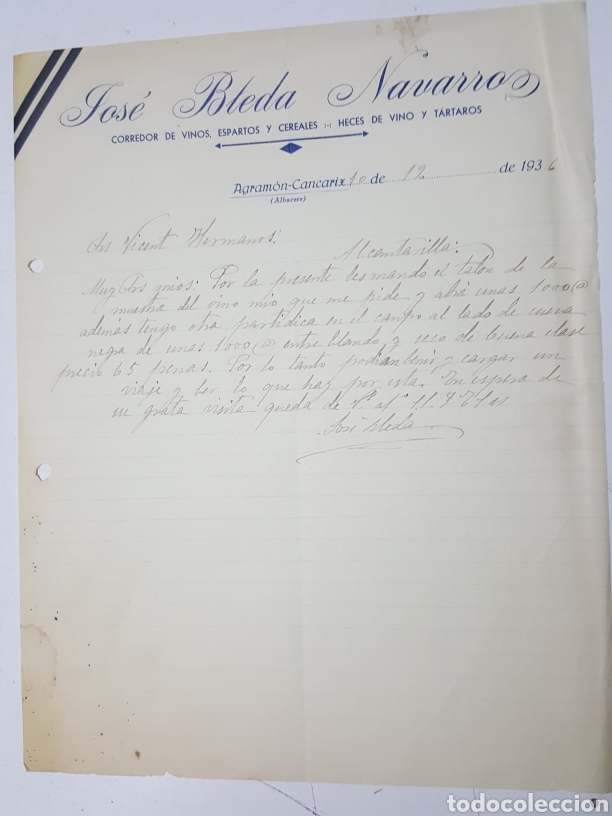 José Bleda Navarro
CORREDOR DE VINOS, ESPARTOS Y CEREALES :-: HECES DE VINO Y TÁRTAROS
Agramón-Cancarix 10 de 12 de 1936
(Albacete)
Srs Vicent Hermanos:
Alcantarilla:
Muy Srs mios: Por la presente les mando el talon de la
muestra del vino mio que me pide y abrá unas 1000 @
ademas tengo otra partidica en el campo al lado de cueva
negra de unas 1000 @ entre blando y seco de buena clase
precio 65 perras. Por lo tanto podian benir y cargar un
viaje y ber lo que hay por esta. En espera de
su grata visita queda de Vd
José Bleda
todocoleccion